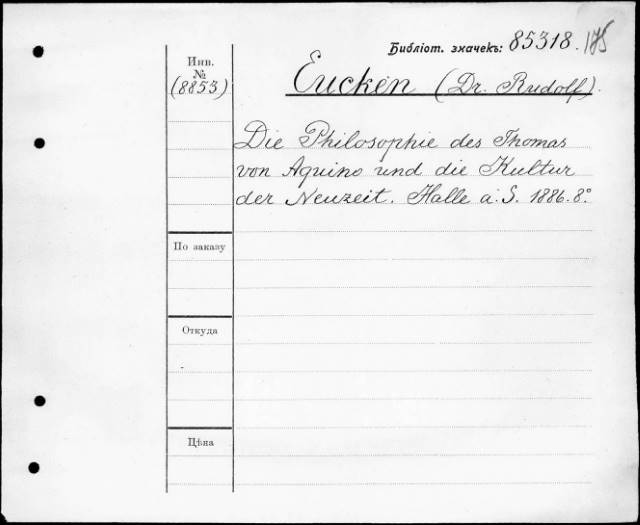 Библіот. значекъ: 85318. 175
Инв.
№
(8853)
Eucken (Dr. Rudolf).
Die Philosophie des Thomas
von Aquino und die Kultur
der Neuzeit. Halle a. S. 1886. 8°.
По заказу
Откуда
Цѣна